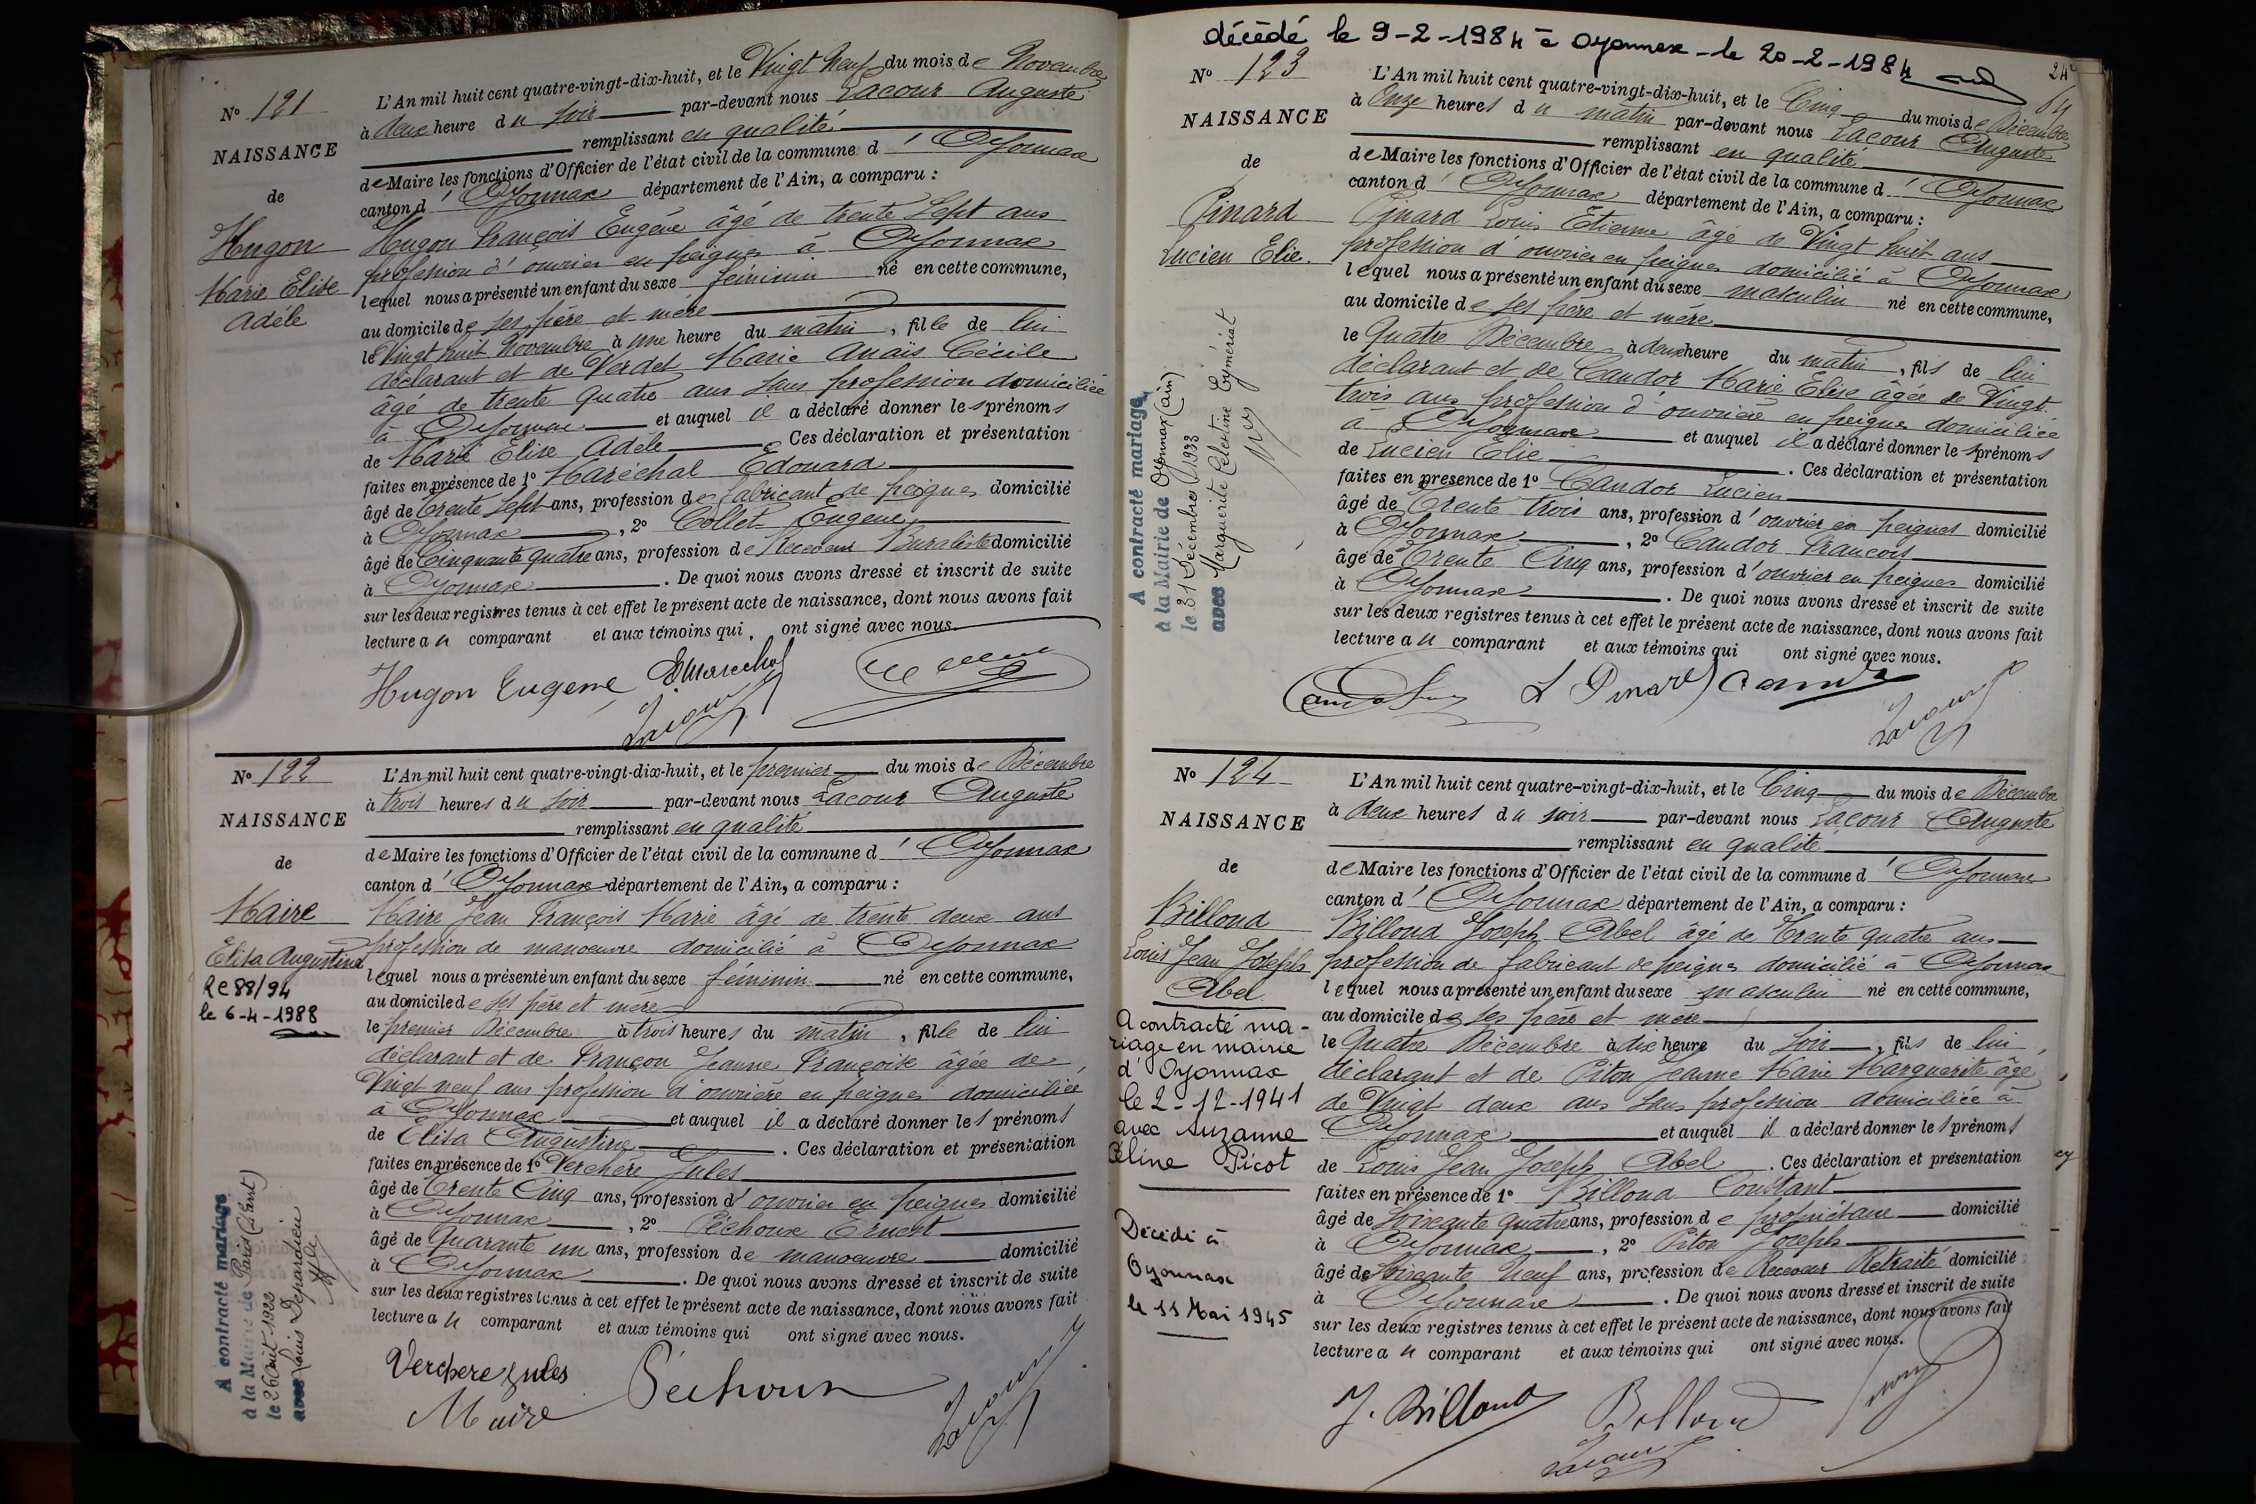 N° 121
NAISSANCE
de
Hugon
Marie Elise
Adèle
L'An mil huit cent quatre-vingt-dix-huit, et le Vingt Neuf du mois de Novembre
à deux heure du soir par-devant nous Lacour Auguste
remplissant en qualité
de Maire les fonctions d'Officier de l'état civil de la commune d'Oyonnax
canton d'Oyonnax département de l'Ain, a comparu :
Hugon François Eugène âgé de trente sept ans
profession d'ouvrier en peignes à Oyonnax
lequel nous a présenté un enfant du sexe féminin né en cette commune,
au domicile de ses père et mère
le Vingt huit Novembre à une heure du matin, fille de lui
déclarant et de Verdet Marie Anaïs Cécile
âgé de trente quatre ans sans profession domiciliée
à Oyonnax et auquel il a déclaré donner les prénoms
de Marie Elise Adèle. Ces déclaration et présentation
faites en présence de 1° Maréchal Edouard
âgé de Trente Sept ans, profession de fabricant de peignes domicilié
à Oyonnax, 2° Collet Eugène
âgé de Cinquante quatre ans, profession de Receveur Buraliste domicilié
à Oyonnax. De quoi nous avons dressé et inscrit de suite
sur les deux registres tenus à cet effet le présent acte de naissance, dont nous avons fait
lecture au comparant et aux témoins qui ont signé avec nous.
Hugon Eugène EMarechal
Lacour
N° 122
NAISSANCE
de
Maire
Elisa Augustine
Re 88/94
le 6-4-1988
A contracté mariage
à la Mairie de Paris
le 26 Août 1922
avec Louis Depardieu
L'An mil huit cent quatre-vingt-dix-huit, et le premier du mois de Décembre
à trois heures du soir par-devant nous Lacour Auguste
remplissant en qualité
de Maire les fonctions d'Officier de l'état civil de la commune d'Oyonnax
canton d'Oyonnax département de l'Ain, a comparu :
Maire Jean François Marie âgé de trente deux ans
profession de manoeuvre domicilié à Oyonnax
lequel nous a présenté un enfant du sexe féminin né en cette commune,
au domicile de ses père et mère
le premier Décembre à trois heures du matin, fille de lui
déclarant et de Françon Jeanne Françoise âgée de
Vingt neuf ans profession d'ouvrière en peignes domiciliée
à Oyonnax et auquel il a déclaré donner les prénoms
de Elisa Augustine. Ces déclaration et présentation
faites en présence de 1° Verchère Jules
âgé de Trente Cinq ans, profession d'ouvrier en peignes domicilié
à Oyonnax, 2° Péchoux Ernest
âgé de Quarante un ans, profession de manoeuvre domicilié
à Oyonnax. De quoi nous avons dressé et inscrit de suite
sur les deux registres tenus à cet effet le présent acte de naissance, dont nous avons fait
lecture au comparant et aux témoins qui ont signé avec nous.
Verchere Jules Péchoux
Maire Lacour
décédé le 9-2-1984 à Oyonnax - le 20-2-1984
64
N° 123
NAISSANCE
de
Pinard
Lucien Elie.
A contracté mariage
à la Mairie de Oyonnax (Ain)
le 31 Décembre 1933
avec Marguerite Célestine Eymériat
L'An mil huit cent quatre-vingt-dix-huit, et le Cinq du mois de Décembre
à Onze heures du matin par-devant nous Lacour Auguste
remplissant en qualité
de Maire les fonctions d'Officier de l'état civil de la commune d'Oyonnax
canton d'Oyonnax département de l'Ain, a comparu :
Pinard Louis Etienne âgé de Vingt huit ans
profession d'ouvrier en peignes domicilié à Oyonnax
lequel nous a présenté un enfant du sexe masculin né en cette commune,
au domicile de ses père et mère
le Quatre Décembre à deux heure du matin, fils de lui
déclarant et de Candor Marie Elise âgée de Vingt
trois ans profession d'ouvrière en peignes domiciliée
à Oyonnax et auquel il a déclaré donner les prénoms
de Lucien Elie. Ces déclaration et présentation
faites en présence de 1° Candor Lucien
âgé de Trente trois ans, profession d'ouvrier en peignes domicilié
à Oyonnax, 2° Candor François
âgé de Trente Cinq ans, profession d'ouvrier en peignes domicilié
à Oyonnax. De quoi nous avons dressé et inscrit de suite
sur les deux registres tenus à cet effet le présent acte de naissance, dont nous avons fait
lecture au comparant et aux témoins qui ont signé avec nous.
L Pinard
Lacour
N° 124
NAISSANCE
de
Billoud
Louis Jean Joseph
Abel
A contracté ma-
riage en mairie
d'Oyonnax
le 2-12-1941
avec Suzanne
Céline Picot
Décédé à
Oyonnax
le 11 Mai 1945
L'An mil huit cent quatre-vingt-dix-huit, et le Cinq du mois de Décembre
à deux heures du soir par-devant nous Lacour Auguste
remplissant en qualité
de Maire les fonctions d'Officier de l'état civil de la commune d'Oyonnax
canton d'Oyonnax département de l'Ain, a comparu :
Billoud Joseph Abel âgé de Trente quatre ans
profession de fabricant de peignes domicilié à Oyonnax
lequel nous a présenté un enfant du sexe masculin né en cette commune,
au domicile de ses père et mère
le Quatre Décembre à dix heure du soir, fils de lui
déclarant et de Piton Jeanne Marie Marguerite âgé
de Vingt deux ans sans profession domiciliée à
Oyonnax et auquel il a déclaré donner les prénoms
de Louis Jean Joseph Abel. Ces déclaration et présentation
faites en présence de 1° Billoud Constant
âgé de Soixante quatre ans, profession de propriétaire domicilié
à Oyonnax, 2° Piton Joseph
âgé de Soixante Neuf ans, profession de Receveur Retraité domicilié
à Oyonnax. De quoi nous avons dressé et inscrit de suite
sur les deux registres tenus à cet effet le présent acte de naissance, dont nous avons fait
lecture au comparant et aux témoins qui ont signé avec nous.
J. Billoud Billoud
Lacour